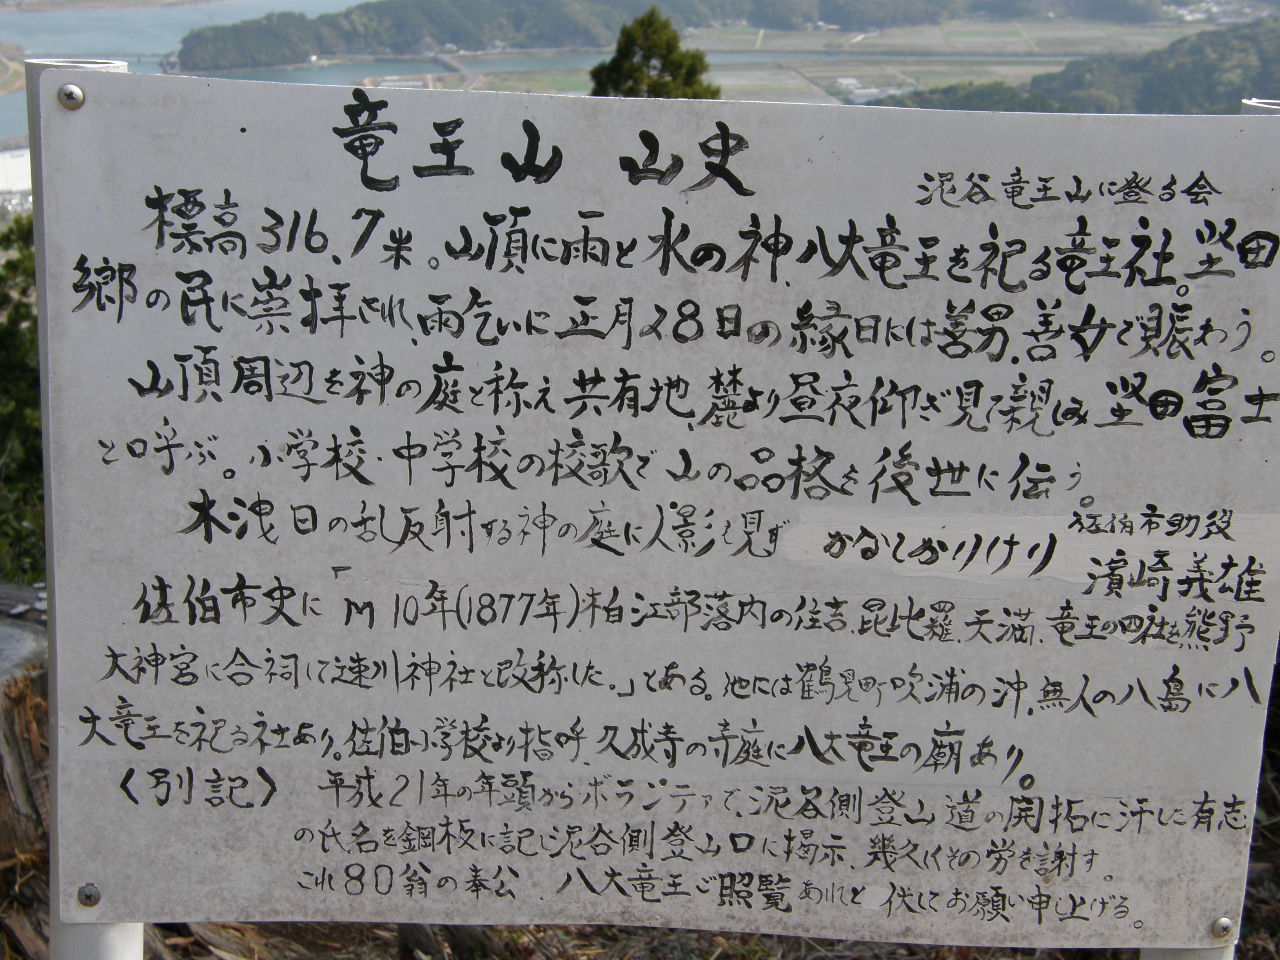 竜王山 山史
泥谷竜王山に登る会
標高316.7米。山頂に雨と水の神、八大竜王を祀る竜王社。堅田
郷の民に崇拝され、雨乞いに正月28日の縁日には善男、善女で賑わう。
山頂周辺を神の庭と称え共有地、麓より昼夜仰ぎ見て親しみ堅田富士
と呼ぶ。小学校・中学校の校歌で山の品格を後世に伝う。
木洩日の乱反射する神の庭に人影も見ず かなしかりけり
佐伯市助役
濱崎義雄
佐伯市史に「M10年(1877年)柏江部落内の住吉、昆比羅、天満、竜王の四社を熊野
大神宮に合祠して速川神社と改称した。」とある。他には鶴見町吹浦の沖、無人の八島に八
大竜王を祀る社あり。佐伯小学校より指呼、久成寺の寺庭に八大竜王の廟あり。
〈別記〉 平成21年の年頭からボランティアで、泥谷側登山道の開拓に汗した有志
の氏名を鋼板に記し泥谷側登山口に掲示、幾久しくその労を謝す。
これ80翁の奉公 八大竜王ご照覧あれと 伏してお願い申し上げる。